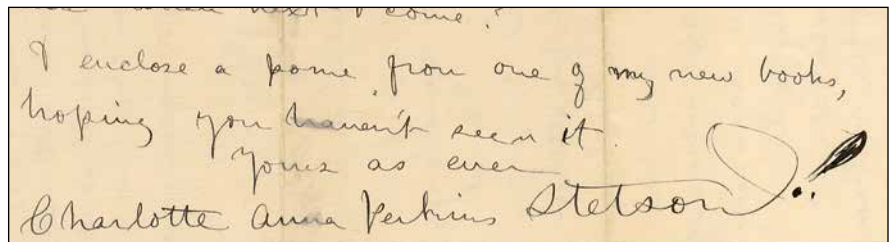 when next I come?
I enclose a pome from one of my new books,
hoping you haven't seen it.
Yours as ever
Charlotte Anna Perkins Stetson!